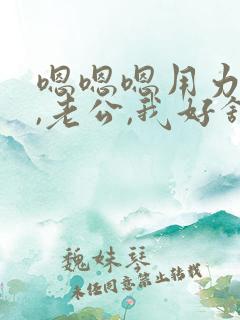 嗯嗯嗯用力
,老公,我好舒
魏妹琴
未经同意禁止转载